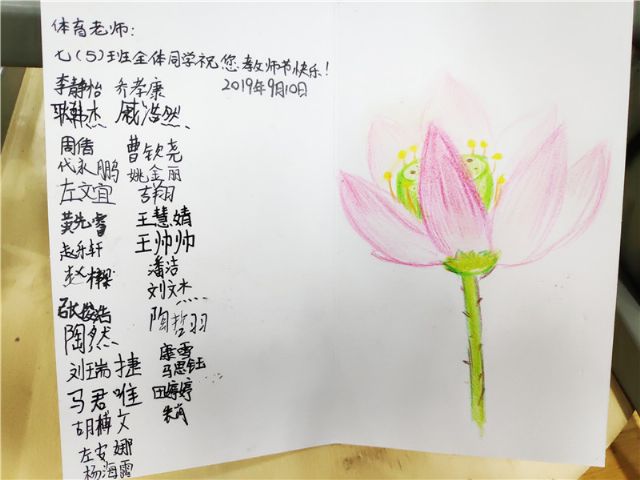 体育老师:
七(5)班全体同学祝您教师节快乐!
2019年9月10日
李静怡 乔孝康
耿韩杰 戚浩然
周倩 曹钦尧
代永鹏 姚金丽
左文宜 吉翔
黄先睿 王慧婧
赵乐轩 王帅帅
赵樑 潘洁
刘文杰
张俊浩 陶哲羽
陶然
刘瑞捷 康雪
马思钰
马君唯 田婷婷
胡博文 朱肖
左安娜
杨海霞